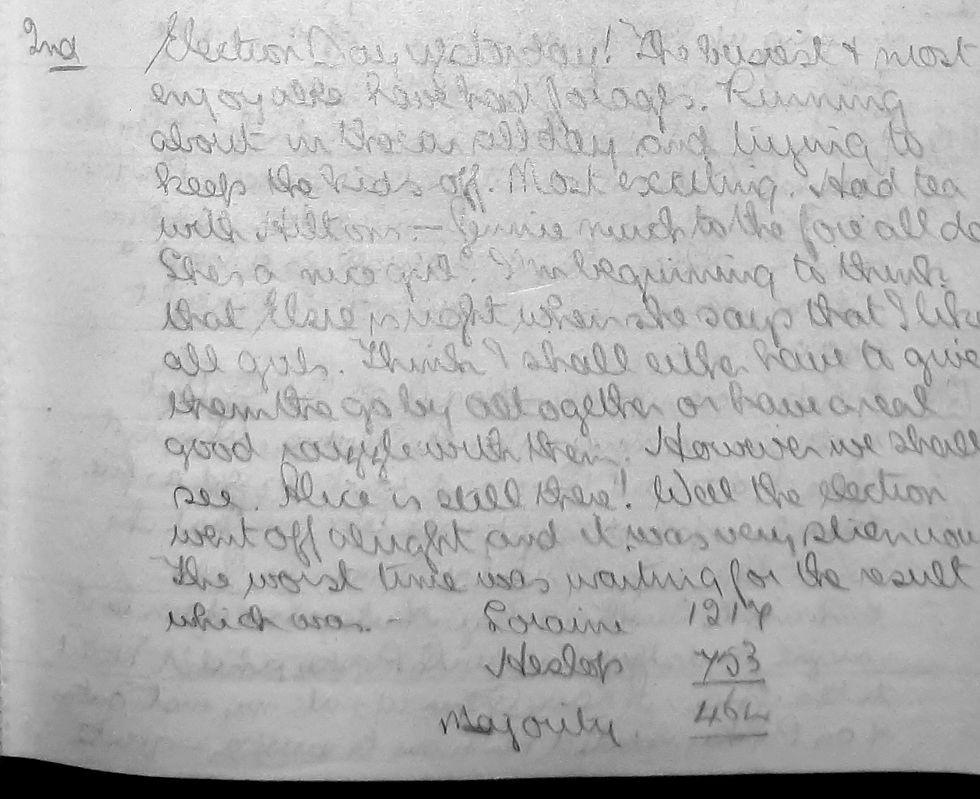 2nd Election Day yesterday! The busiest & most
enjoyable have had for ages. Running
about in the car all day and trying to
keep the kids off. Most exciting. Had tea
with Hiltons. — Jennie much to the fore all da
She's a nice girl. I'm beginning to think
that Elsie is right when she says that I like
all girls. Think I shall either have to give
them the go by altogether or have a real
good razzle with them. However we shall
see. Alice is still there! Well the election
went off alright and it was very strenuou
The worst time was waiting for the result
which was. — Loraine 1217
Heslop 753
Majority. 464